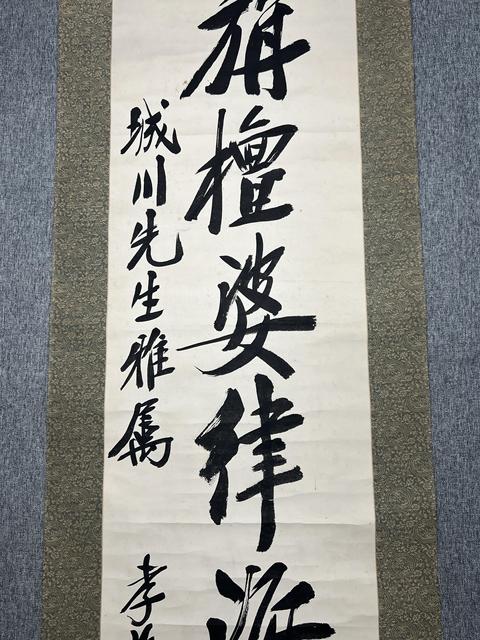 旃檀婆律
城川先生雅属 孝